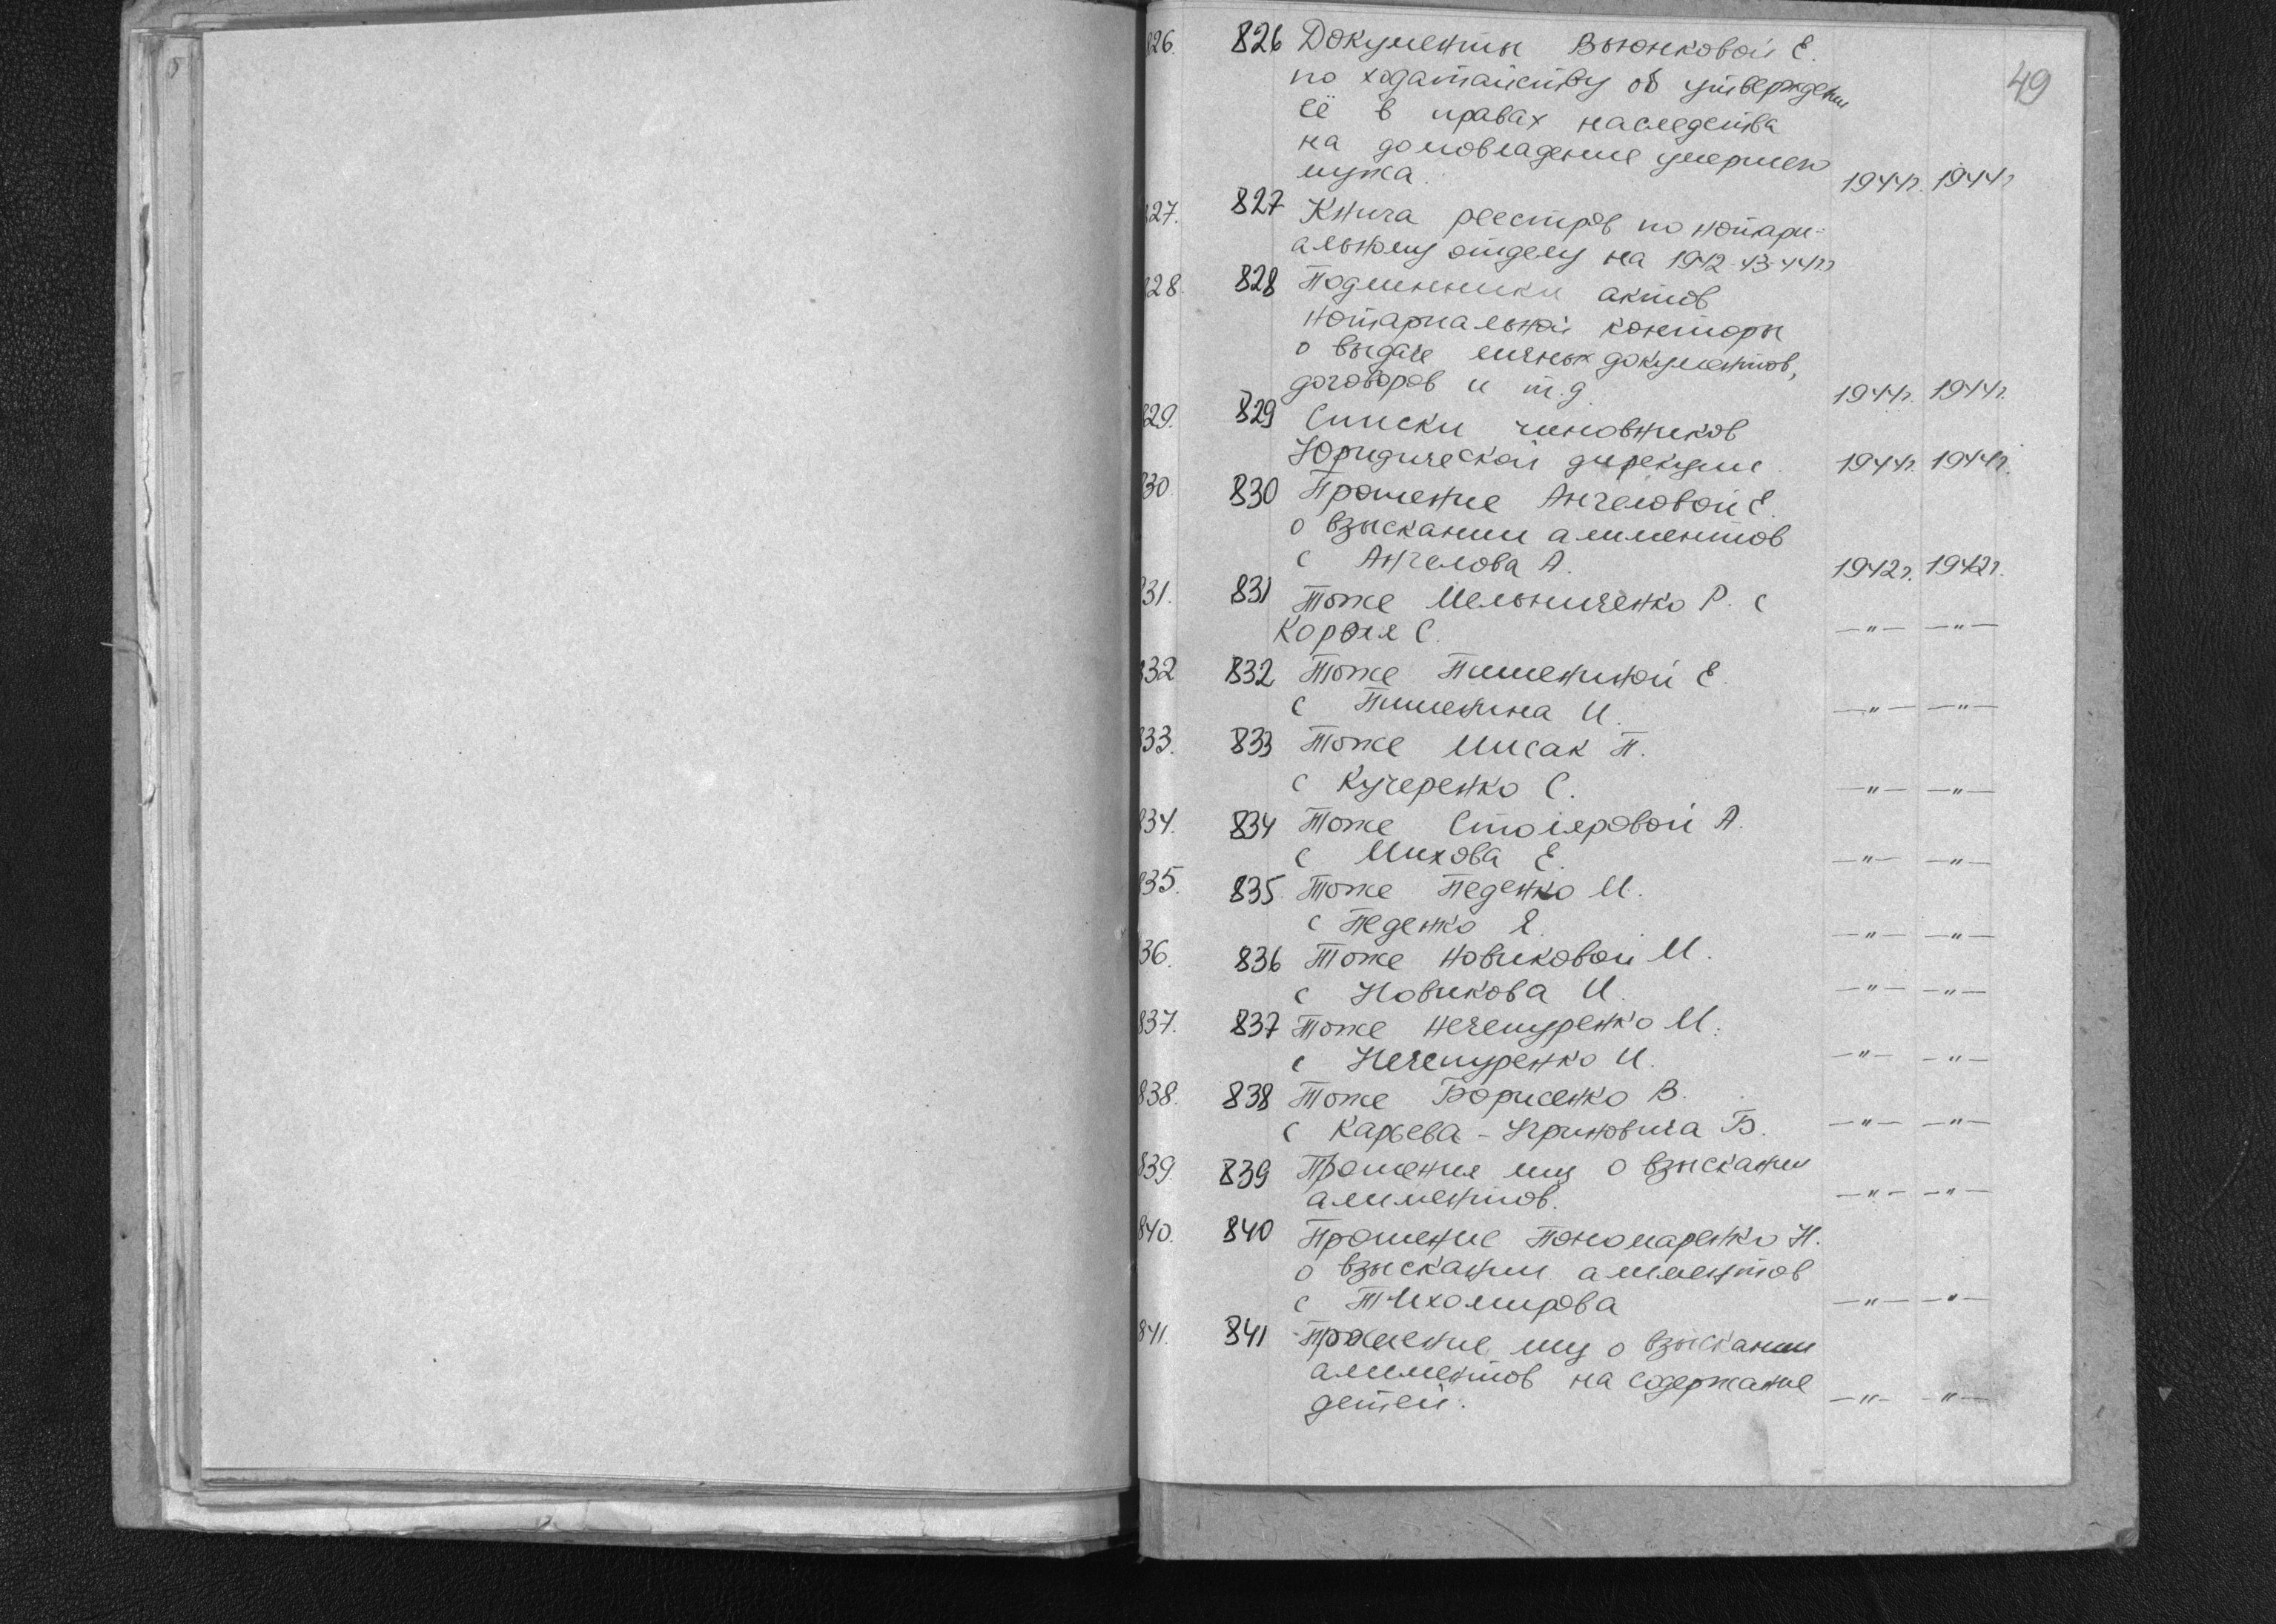 49
826. 826 Документы Вьюнковой Е.
по ходатайству об утверждении
её в правах наследства
на домовладение умершего
мужа. 1944г. 1944г
827. 827 Книга реестров по нотари-
альному отделу на 1942-43-44гг
828. 828 Подлинники актов
нотариальной конторы
о выдаче личных документов,
договоров и т.д. 1944г. 1944г.
829. 829 Списки чиновников
Юридической дирекции. 1944г. 1944г.
830 830 Прошение Ангеловой Е.
о взыскании алиментов
с Ангелова А. 1942г. 1942г.
831. 831 Тоже Мельниченко Р. с
Корфля С. —"— —"—
832 832 Тоже Пимениной Е.
с Пименина И. —"— —"—
833. 833 Тоже Мисак П.
с Кучеренко С. —"— —"—
834. 834 Тоже Столяровой А.
с Михова Е. —"— —"—
835. 835. Тоже Педенко М.
с Педенко Я. —"— —"—
836. 836 Тоже Новиковой М.
с Новикова И. —"— —"—
837. 837 Тоже Нечепуренко М.
с Нечепуренко И. —"— —"—
838. 838 Тоже Борисенко В.
с Карьева - Гриновича Б. —"— —"—
839. 839 Прошения лиц о взыскании
алиментов. —"— —"—
840. 840 Прошение Пономаренко Н.
о взыскании алиментов
с Тихомирова —"— —"—
841. 841 Прошение лиц о взыскании
алиментов на содержание
детей. —"— —"—